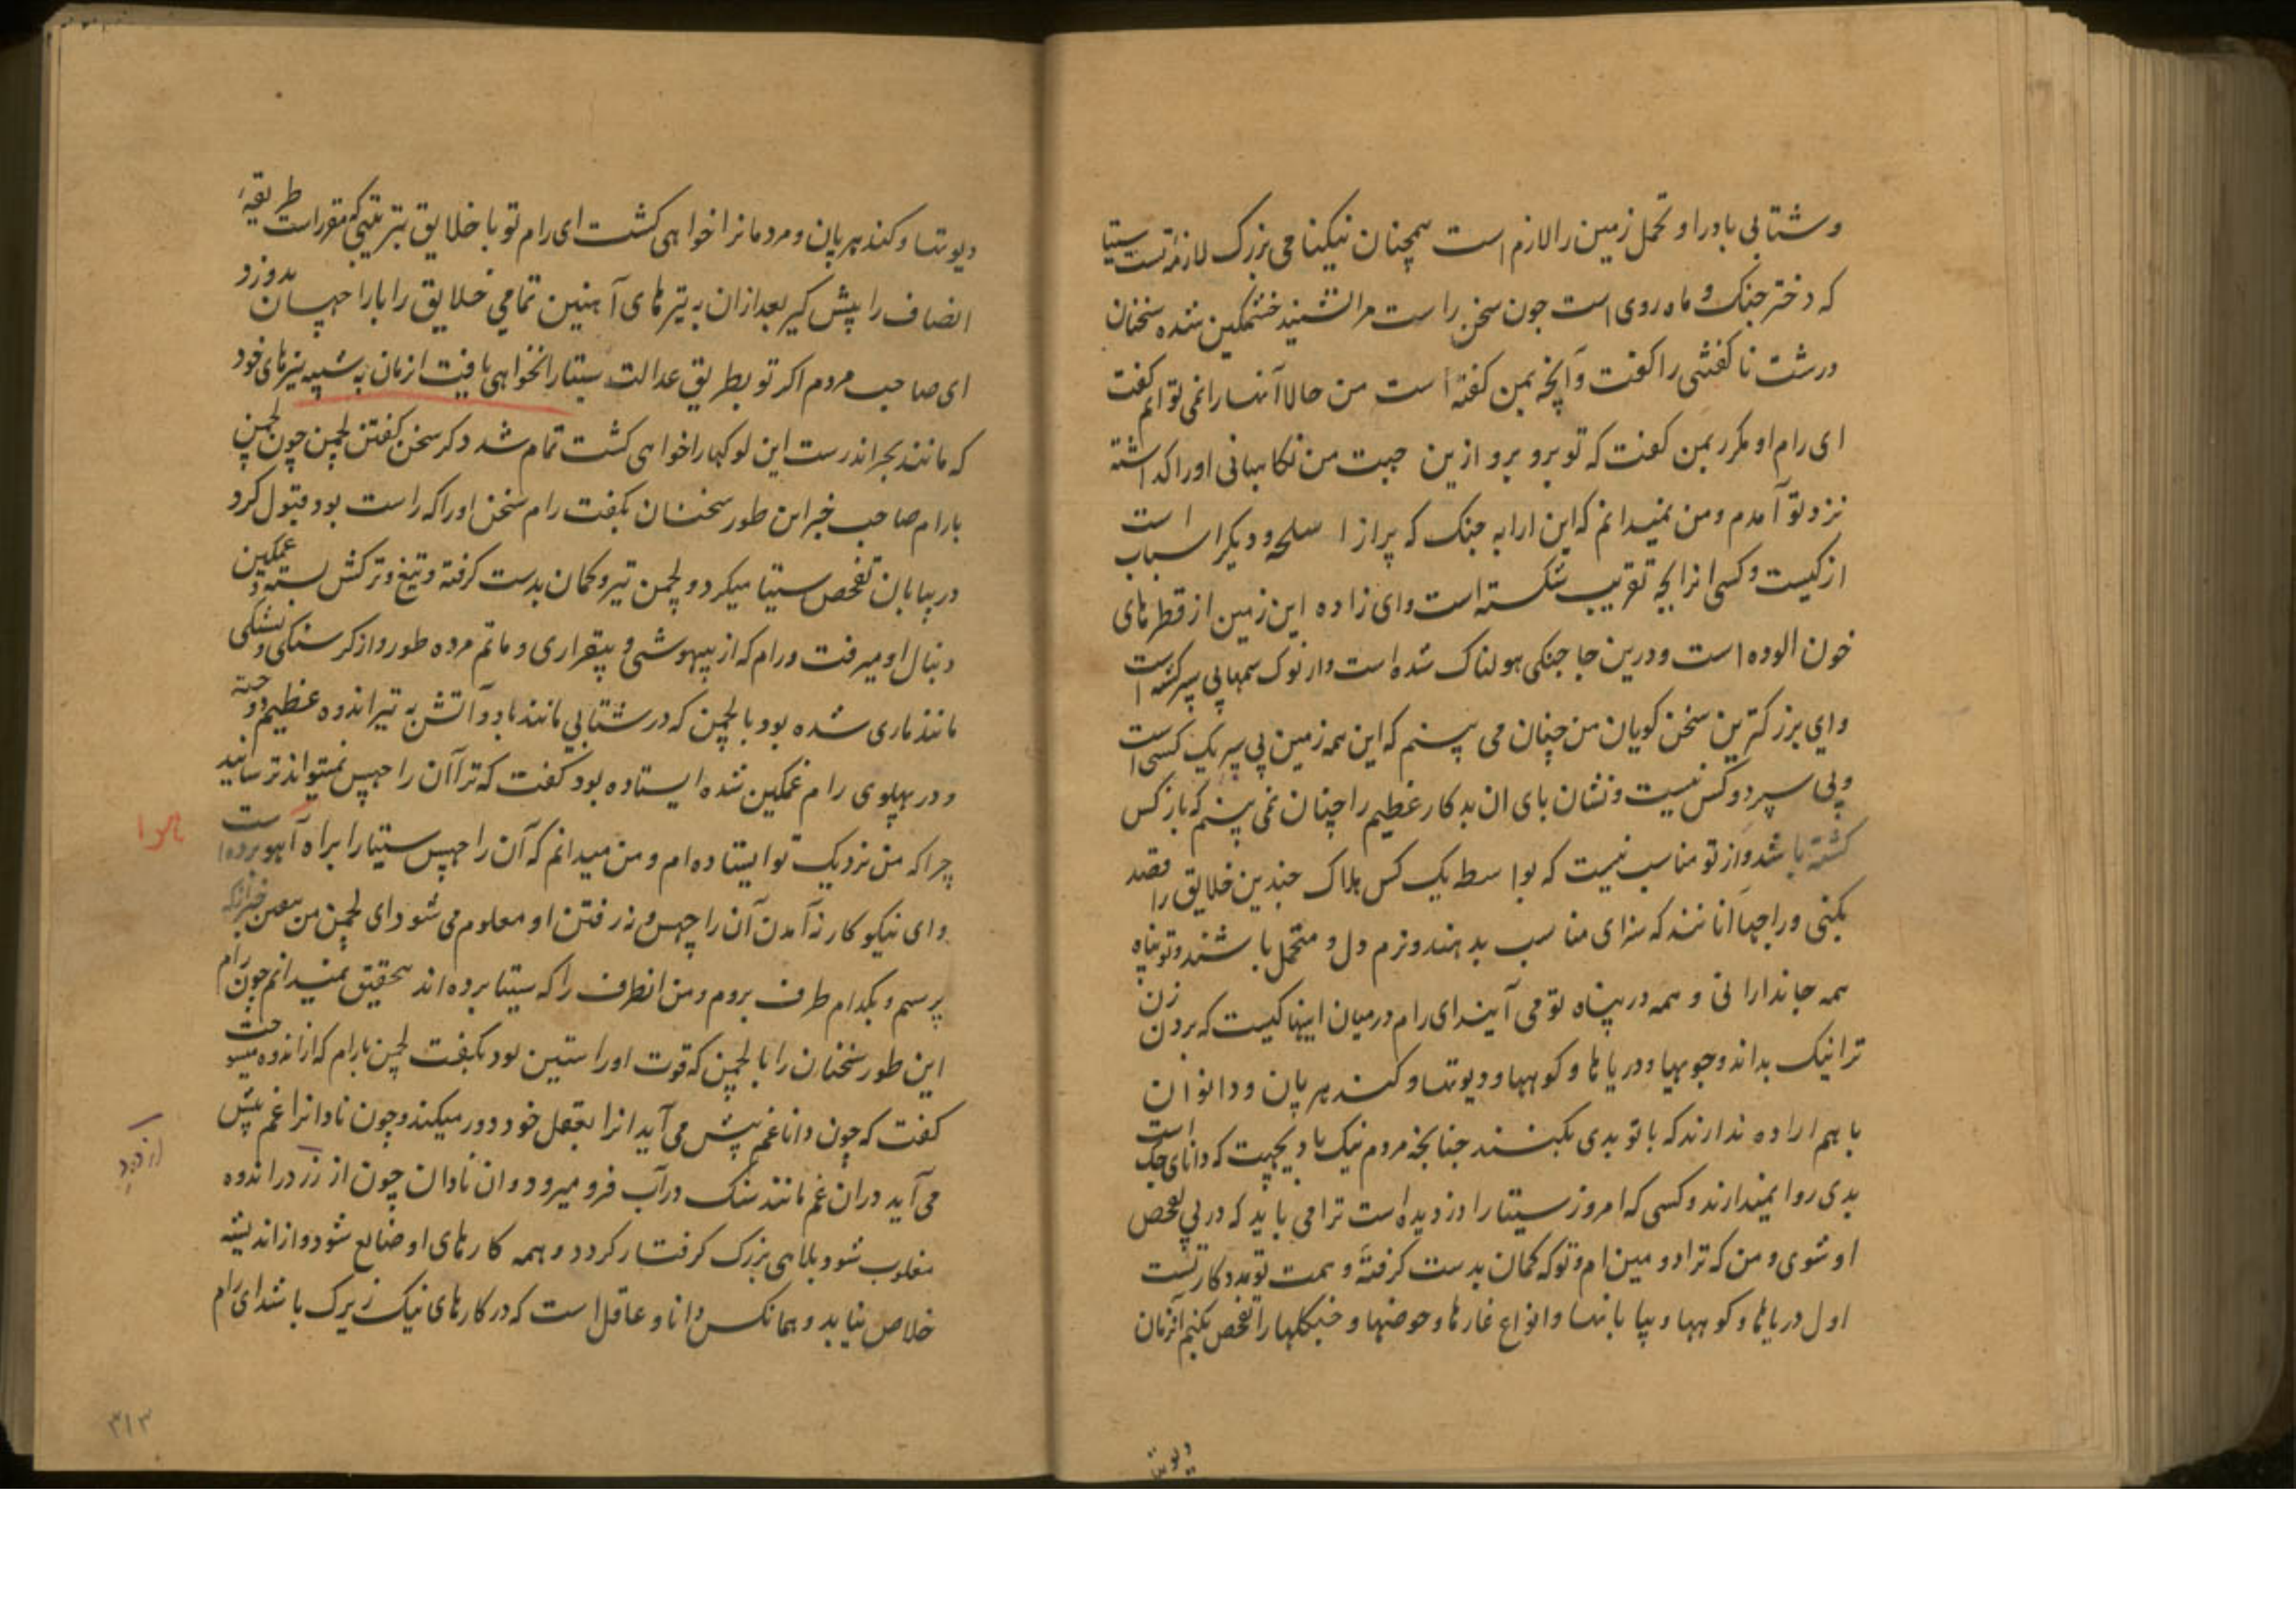 و شتابی باد را و تحمل زمین را لازم است همچنان نیکنامی بزرگ لازمهٔ تست سیتا
که دختر جنک و ماه روی است چون سخن راست مرا نشنید خشمگین شده سخنان
درشت ناگفتنی را گفت و آنچه بمن گفته است من حالا آنها را نمی توانم گفت
ای رام او مکرر بمن گفت که تو برو برو ازین جهت من نکاهبانی او را گذاشته
نزد تو آمدم و من نمیدانم که این ارابه جنک که پر از اسلحه و دیکر اسباب است
از کیست و کسی انرا بچه تقریب شکسته است و ای زاده این زمین از قطرهای
خون الوده است و درین جا جنکی هولناک شده است و از نوک سمها پی سپر کشته است
و ای بزرکترین سخن کویان من چنان می بینم که این همه زمین پی سپر یک کسی است
و پی سپر دو کس نیست و نشان پای ان بدکار عظیم را چنان نمی بینم که باز کس
کشته باشد و از تو مناسب نیست که بواسطه یک کس هلاک چندین خلایق را قصد
بکنی و راجها آنانند که سزای مناسب بدهند و نرم دل و متحمل باشند و تو پناه
همه جاندارانی و همه در پناه تو می آیند ای رام در میان اینها کیست که بردن زن
ترا نیک بداند و جویها و دریاها و کوهها و دیوتها و کندهرپان و دانوان
با هم اراده ندارند که با تو بدی بکنند چنانچه مردم نیک با دیجهت که دانای جک است
بدی روا نمیدارند و کسی که امروز سیتا را دزدیده است ترا می باید که در پی تفحص
او شوی و من که ترا دومین ام و تو که کمان بدست کرفتهٔ و همت تو مددکار تست
اول دریاها و کوهها و بیابانها و انواع غارها و حوضها و جنکلها را تفحص بکنیم آنزمان
دیوتها
دیوتها و کندهرپان و مردمانرا خواهی کشت ای رام تو با خلایق بترتیبی که مقرر است طریقهٔ
انصاف را پیش کیر بعد از ان به تیرهای آهنین تمامی خلایق را با راچهسان بدوز و
ای صاحب مردم اکر تو بطریق عدالت سیتا را نخواهی یافت انزمان به شبیه تیرهای خود
که مانند بجر اندرست این لوکها را خواهی کشت تمام شد ذکر سخن کفتن لچمن چون لچمن
با رام صاحب خبر این طور سخنان بکفت رام سخن او را که راست بود قبول کرد
در بیابان تفحص سیتا میکرد و لچمن تیر و کمان بدست کرفته و تیغ و ترکش بسته و غمگین
دنبال او میرفت و رام که از بیهوشی و بیقراری و ماتم مرده طور و از کرسنکی و تشنکی
مانند ماری شده بود با لچمن که در شتابی مانند باد و آتش به تیر اندوه عظیم دوخته
و در پهلوی رام غمکین شده ایستاده بود کفت که ترا آن راچهس نمیتواند ترسانید
چرا که من نزدیک تو ایستاده ام و من میدانم که آن راچهس سیتا را براه آهو برده است
و ای نیکوکار نه آمدن آن راچهس و نه رفتن او معلوم می شود ای لچمن من
پرسم و بکدام طرف بروم و من انطرف را که سیتا برده اند تحقیق نمیدانم چون رام
این طور سخنان را با لچمن که قوت او راستین بود بکفت لچمن با رام که از اندوه میسوخت
کفت که چون دانا غم پیش می آید انرا بعقل خود دور میکند و چون نادانرا غم پیش
می آید در ان غم مانند سنک در آب فرو میرود و ان نادان چون از زر در اندوه
مغلوب شود بلاهی بزرک کرفتار کردد و همه کارهای او ضایع شود و از اندیشه
خلاص نیابد و همانکس دانا و عاقل است که در کارهای نیک زیرک باشد ای رام
۳۱۳